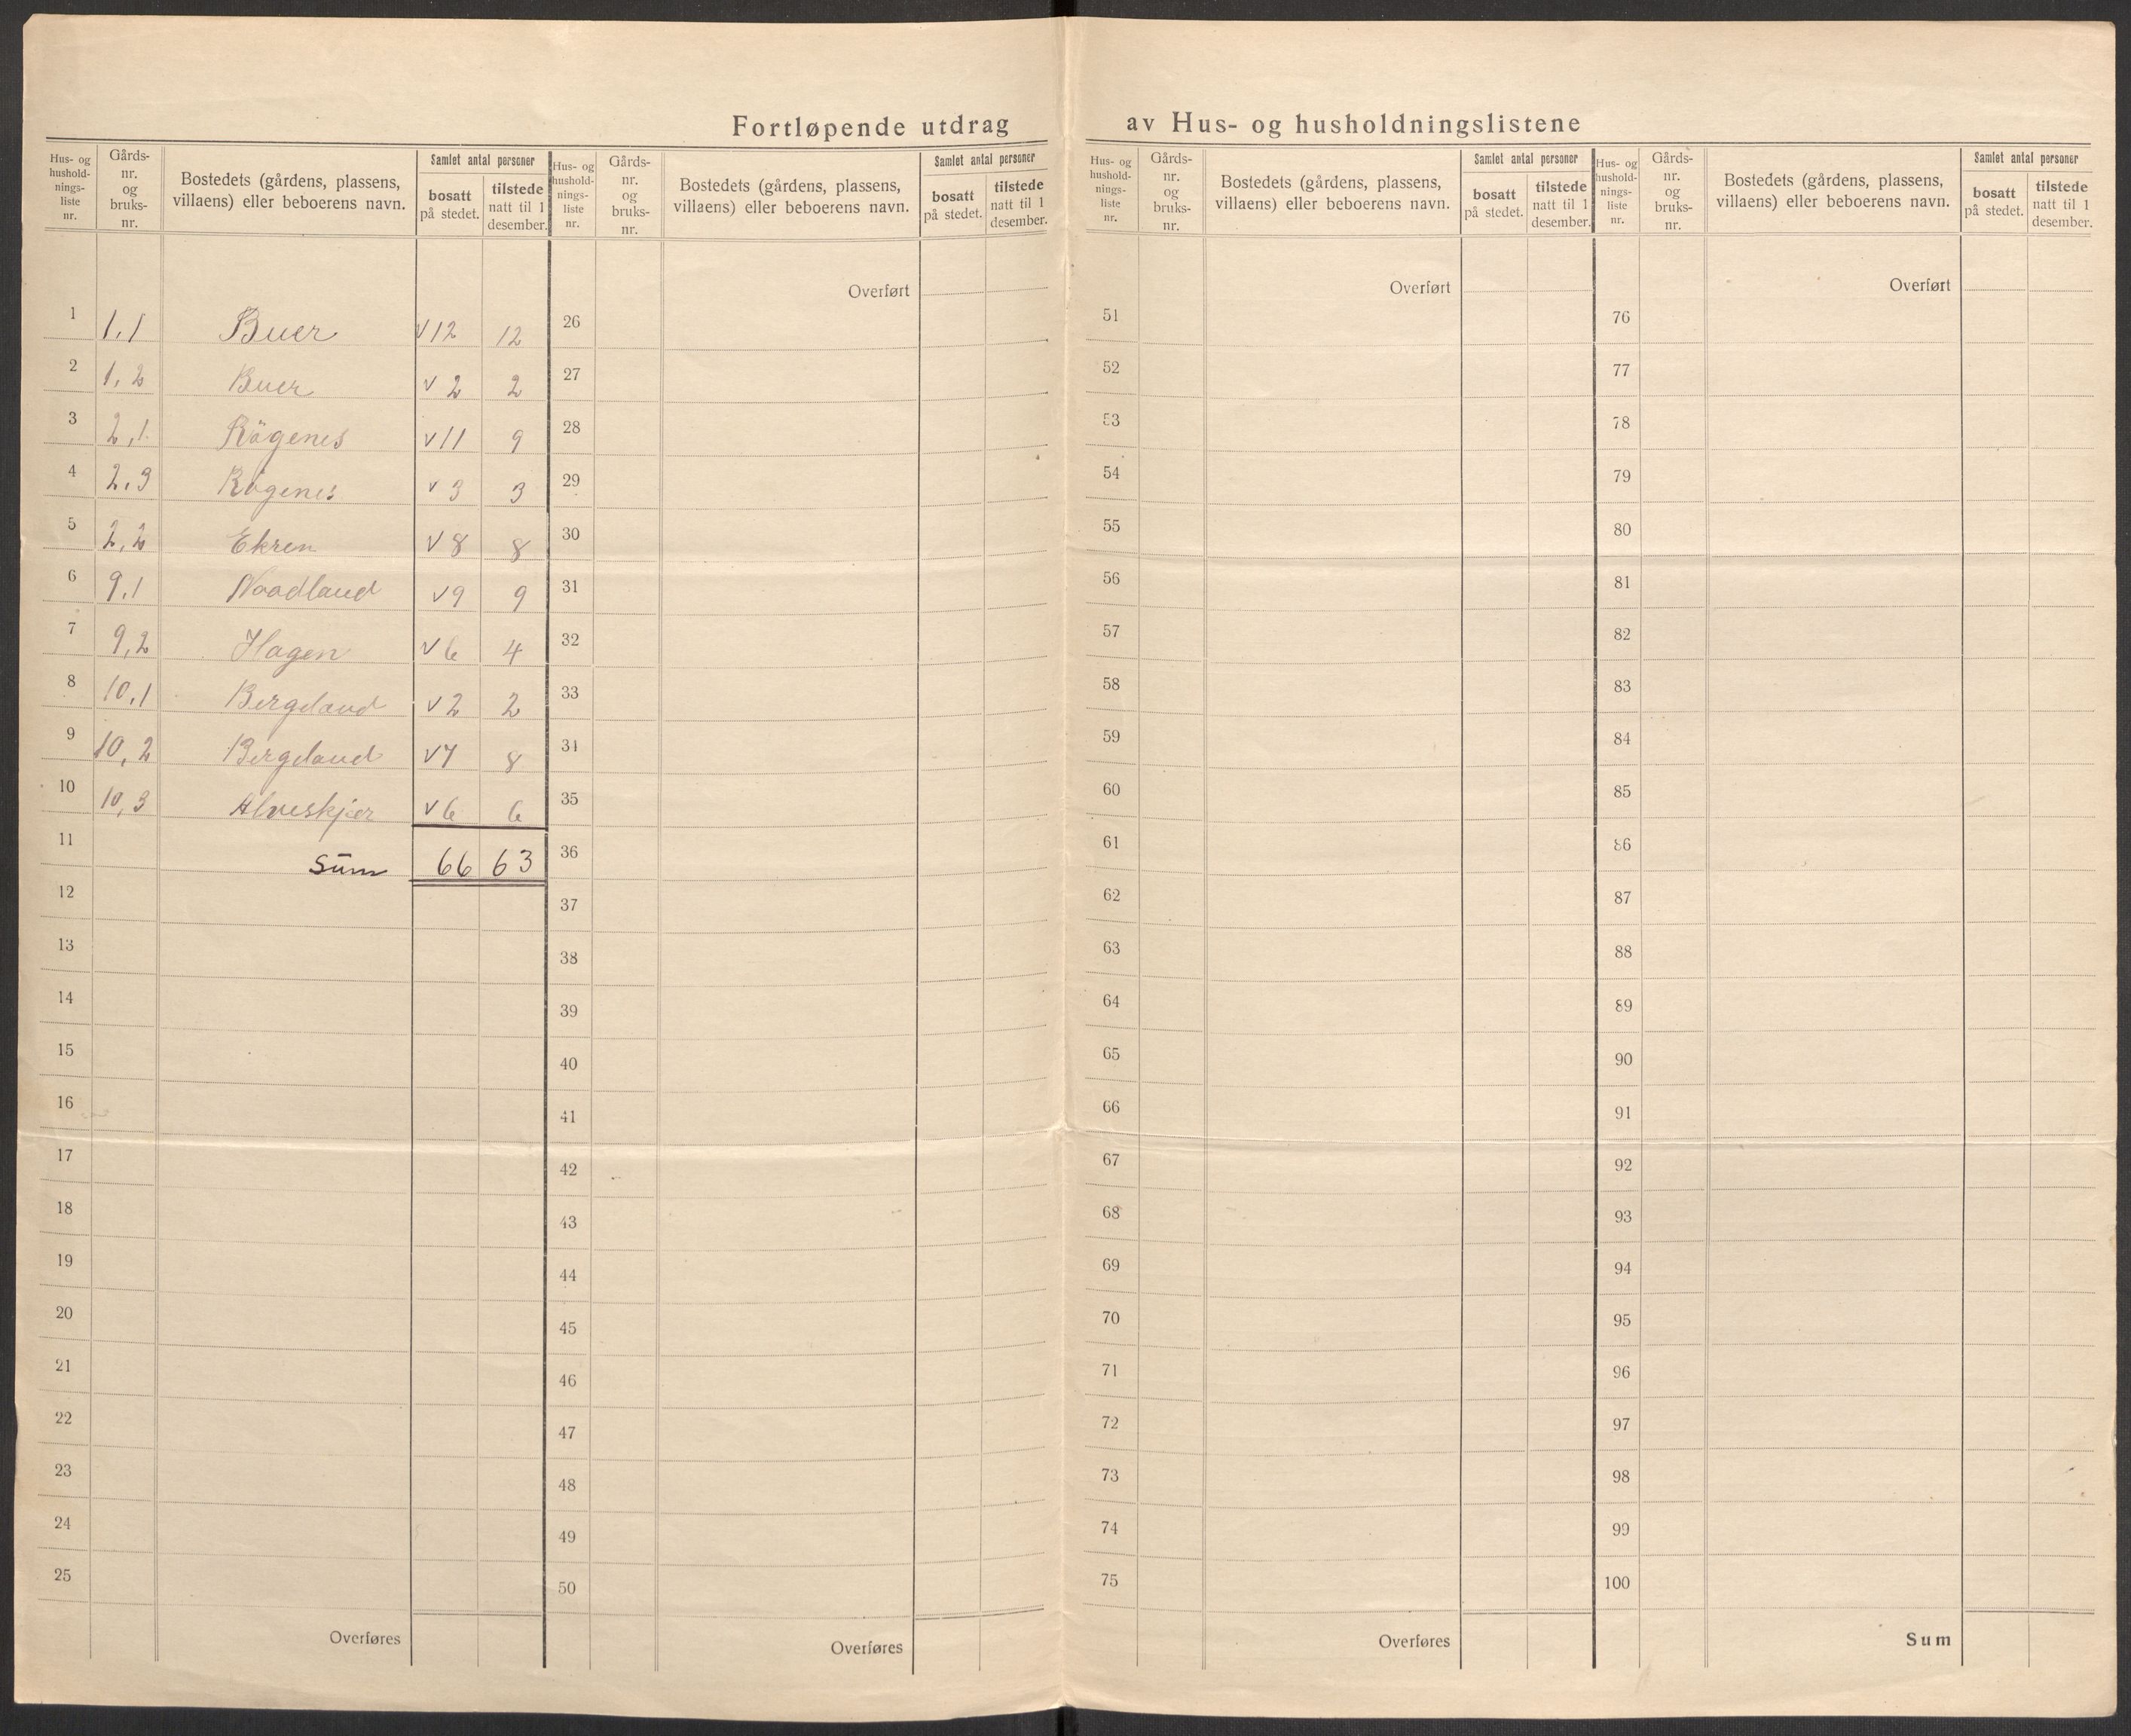 Fortløpende utdrag av Hus- og husholdningslistene
Hus- og hushold-nings-liste nr. Gårds-nr. og bruks-nr. Bostedets (gårdens, plassens, villaens) eller beboerens navn. Samlet antal personer bosatt på stedet. tilstede natt til 1 desember.
Hus- og hushold-nings-liste nr. Gårds-nr. og bruks-nr. Bostedets (gårdens, plassens, villaens) eller beboerens navn. Samlet antal personer bosatt på stedet. tilstede natt til 1 desember.
Hus- og hushold-nings-liste nr. Gårds-nr. og bruks-nr. Bostedets (gårdens, plassens, villaens) eller beboerens navn. Samlet antal personer bosatt på stedet. tilstede natt til 1 desember.
Hus- og hushold-nings-liste nr. Gårds-nr. og bruks-nr. Bostedets (gårdens, plassens, villaens) eller beboerens navn. Samlet antal personer bosatt på stedet. tilstede natt til 1 desember.
Overført Overført Overført
1 1,1 Buer √12 12 26 51 76
2 1,2 Buer √2 2 27 52 77
3 2,1 Rögenes √11 9 28 53 78
4 2,3 Rögenes √3 3 29 54 79
5 2,2 Ekren √8 8 30 55 80
6 9,1 Noadland √9 9 31 56 81
7 9,2 Hagen √6 4 32 57 82
8 10,1 Bergeland √2 2 33 58 83
9 10,2 Bergeland √7 8 34 59 84
10 10,3 Alveskjer √6 6 35 60 85
11 Sūm 66 63 36 61 86
12 37 62 87
13 38 63 88
14 39 64 89
15 40 65 90
16 41 66 91
17 42 67 92
18 43 68 93
19 44 69 94
20 45 70 95
21 46 71 96
22 47 72 97
23 48 73 98
24 49 74 99
25 50 75 100
Overføres Overføres Overføres Sum